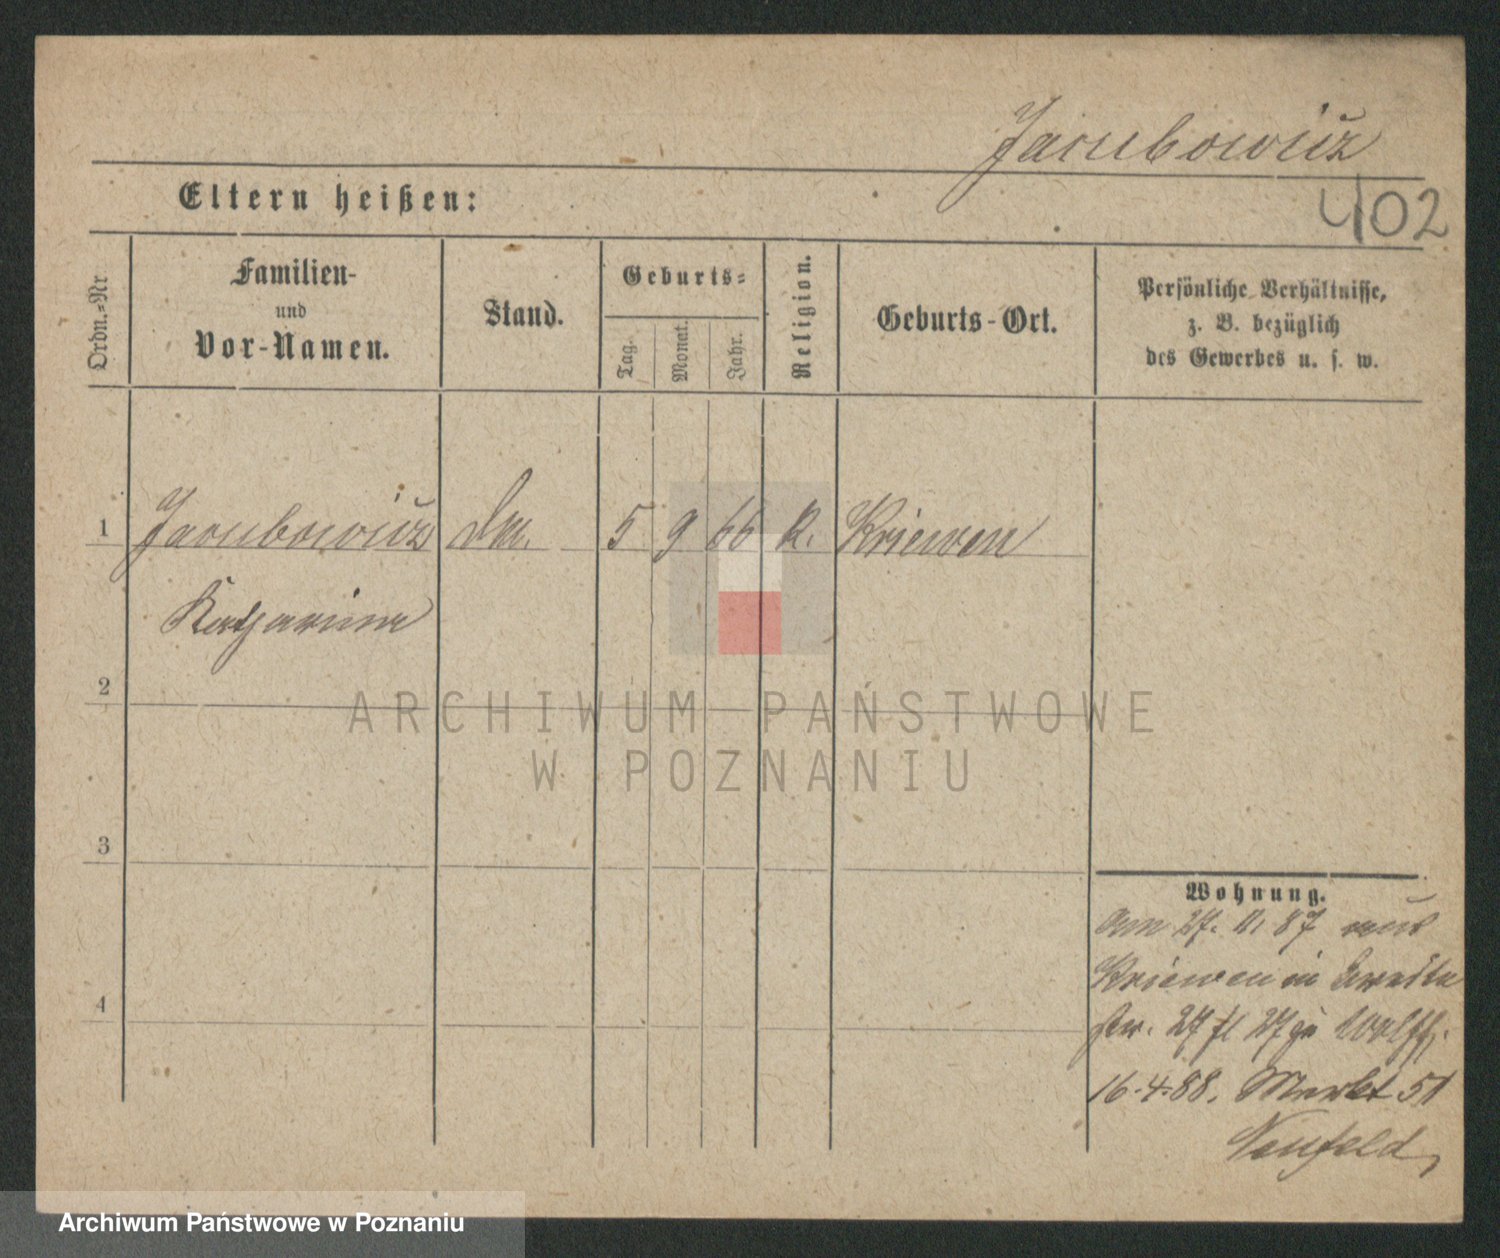 Jacubowicz
402
Eltern heißen:
Ordn.-Nr.
Familien-
und
Vor-Namen.
Stand.
Geburts-
Tag.
Monat.
Jahr.
Religion.
Geburts-Ort.
Persönliche Verhältnisse,
z. B. bezüglich
des Gewerbes u. s. w.
1 Jacubowicz 5 9 66 K. Kriewen
Katharina
2
ARCHIWUM PAŃSTWOWE
W POZNANIU
3
Wohnung.
am 27. 11. 87 aus
Kriewen in Breite
str. 27 fl 27 zu Wolff.
4
16.4.88. Markt 51
Neufeld,
Archiwum Państwowe w Poznaniu